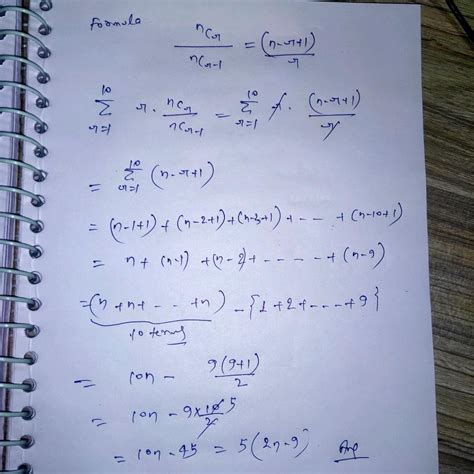 Formula
nCr / nCr-1 = (n-r+1) / r
10 Σ r=1 r · nCr / nCr-1 = 10 Σ r=1 r · (n-r+1) / r
= 10 Σ r=1 (n-r+1)
= (n-1+1) + (n-2+1) + (n-3+1) + - - - + (n-10+1)
= n + (n-1) + (n-2) + - - - - - + (n-9)
= (n + n + - - - + n) - {1+2+ - - - +9}
10 terms
= 10n - 9(9+1) / 2
= 10n - 9×10 5 / 2
= 10n - 45 = 5(2n-9) Ans